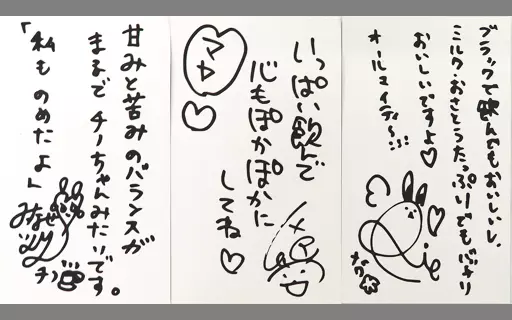 ブラックで飲んでもおいしいし、
ミルク・おさとうたっぷりでもバッチリ
おいしいですよ♡
オールマイティ〜!!!
Rie
いっぱい飲んで
心もぽかぽかに
してね♡
甘みと苦みのバランスが
まるでチノちゃんみたいです。
「私ものめたよ」
チノ